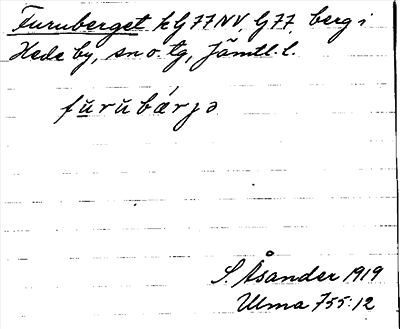 Furuberget k G77NV, G77, berg i
Hede by, sn o. tg, Jämtl. l.
fŭrŭbárjə
S. Åsander 1919
Ulma 755:12